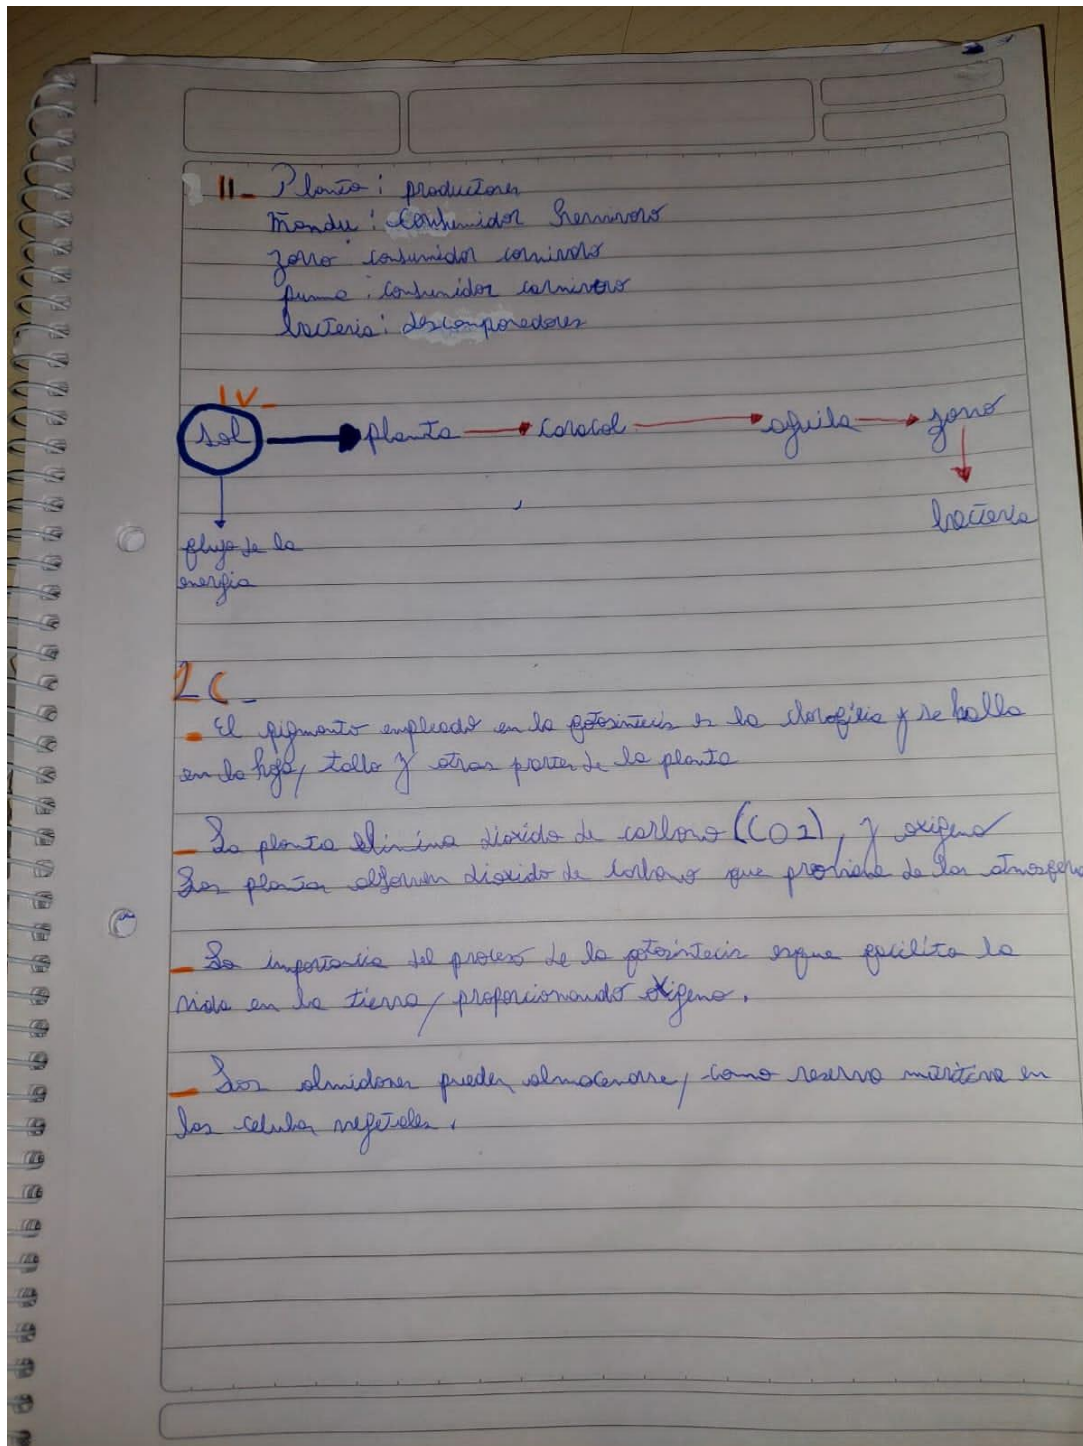 II- Planta: productores
Ñandu: Consumidor hervivoro
zorro consumidor carnivoro
puma: consumidor carnivoro
bacteria: descomponedores
IV-
sol planta caracol aguila zorro
bacteria
flujo de la
energia
2C-
- El pigmento empleado en la fotosintecis es la clorofilia y se halla
en la hoja, tallo y otras partes de la planta
- La planta elimina dioxido de carbono (CO2), y oxigeno
Las plantas absorven dioxido de carbono que proviene de las atmosfera
- La importancia del proceso de la fotosintecis esque facilita la
vida en la tierra, proporcionando oxigeno.
- Los almidones pueden almacenarse, como reserva nutritiva en
las celulas vegetales.